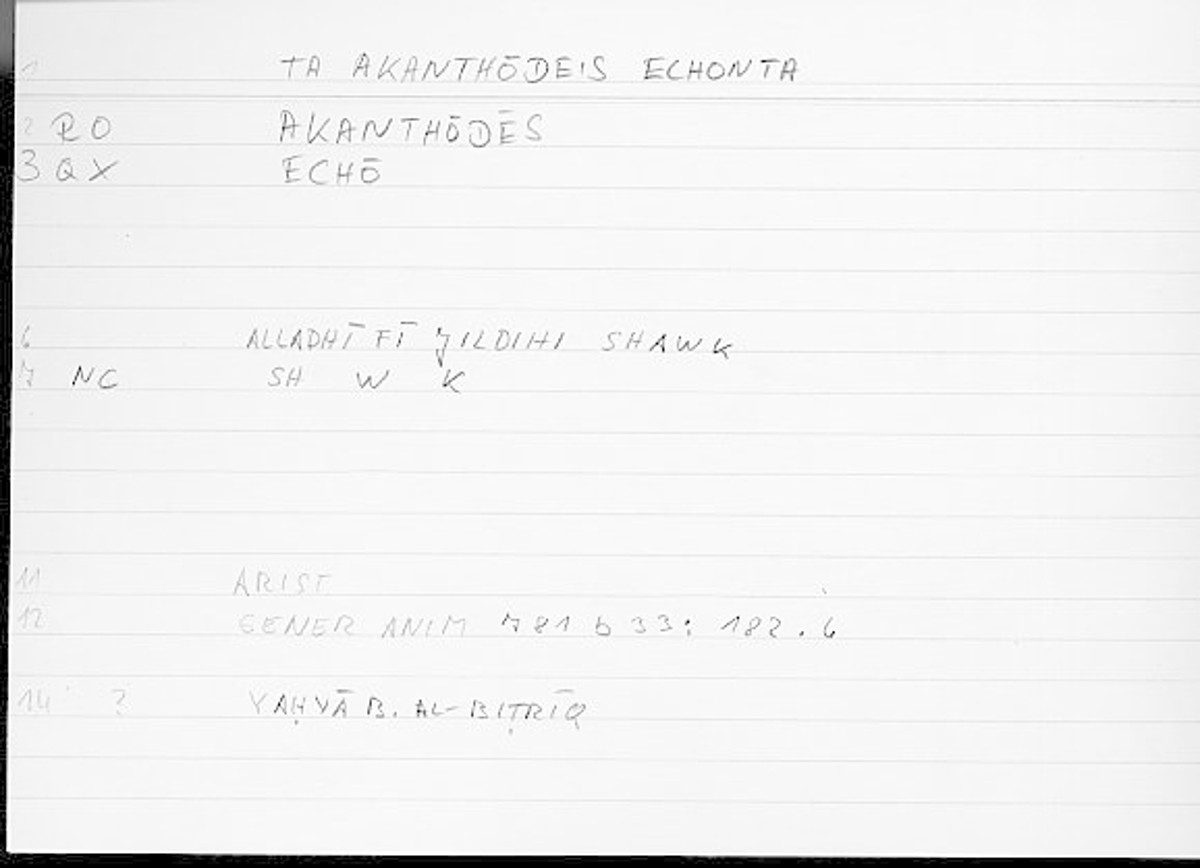 1 TA AKANTHŌDEIS ECHONTA
2 RO AKANTHŌDĒS
3 QX ECHŌ
6 ALLADHĪ FĪ JILDIHI SHAWK
7 NC SH W K
11 ARIST
12 GENER ANIM 781 b 33: 182.6
14 ? YAḤYĀ B. AL-BIṬRĪQ